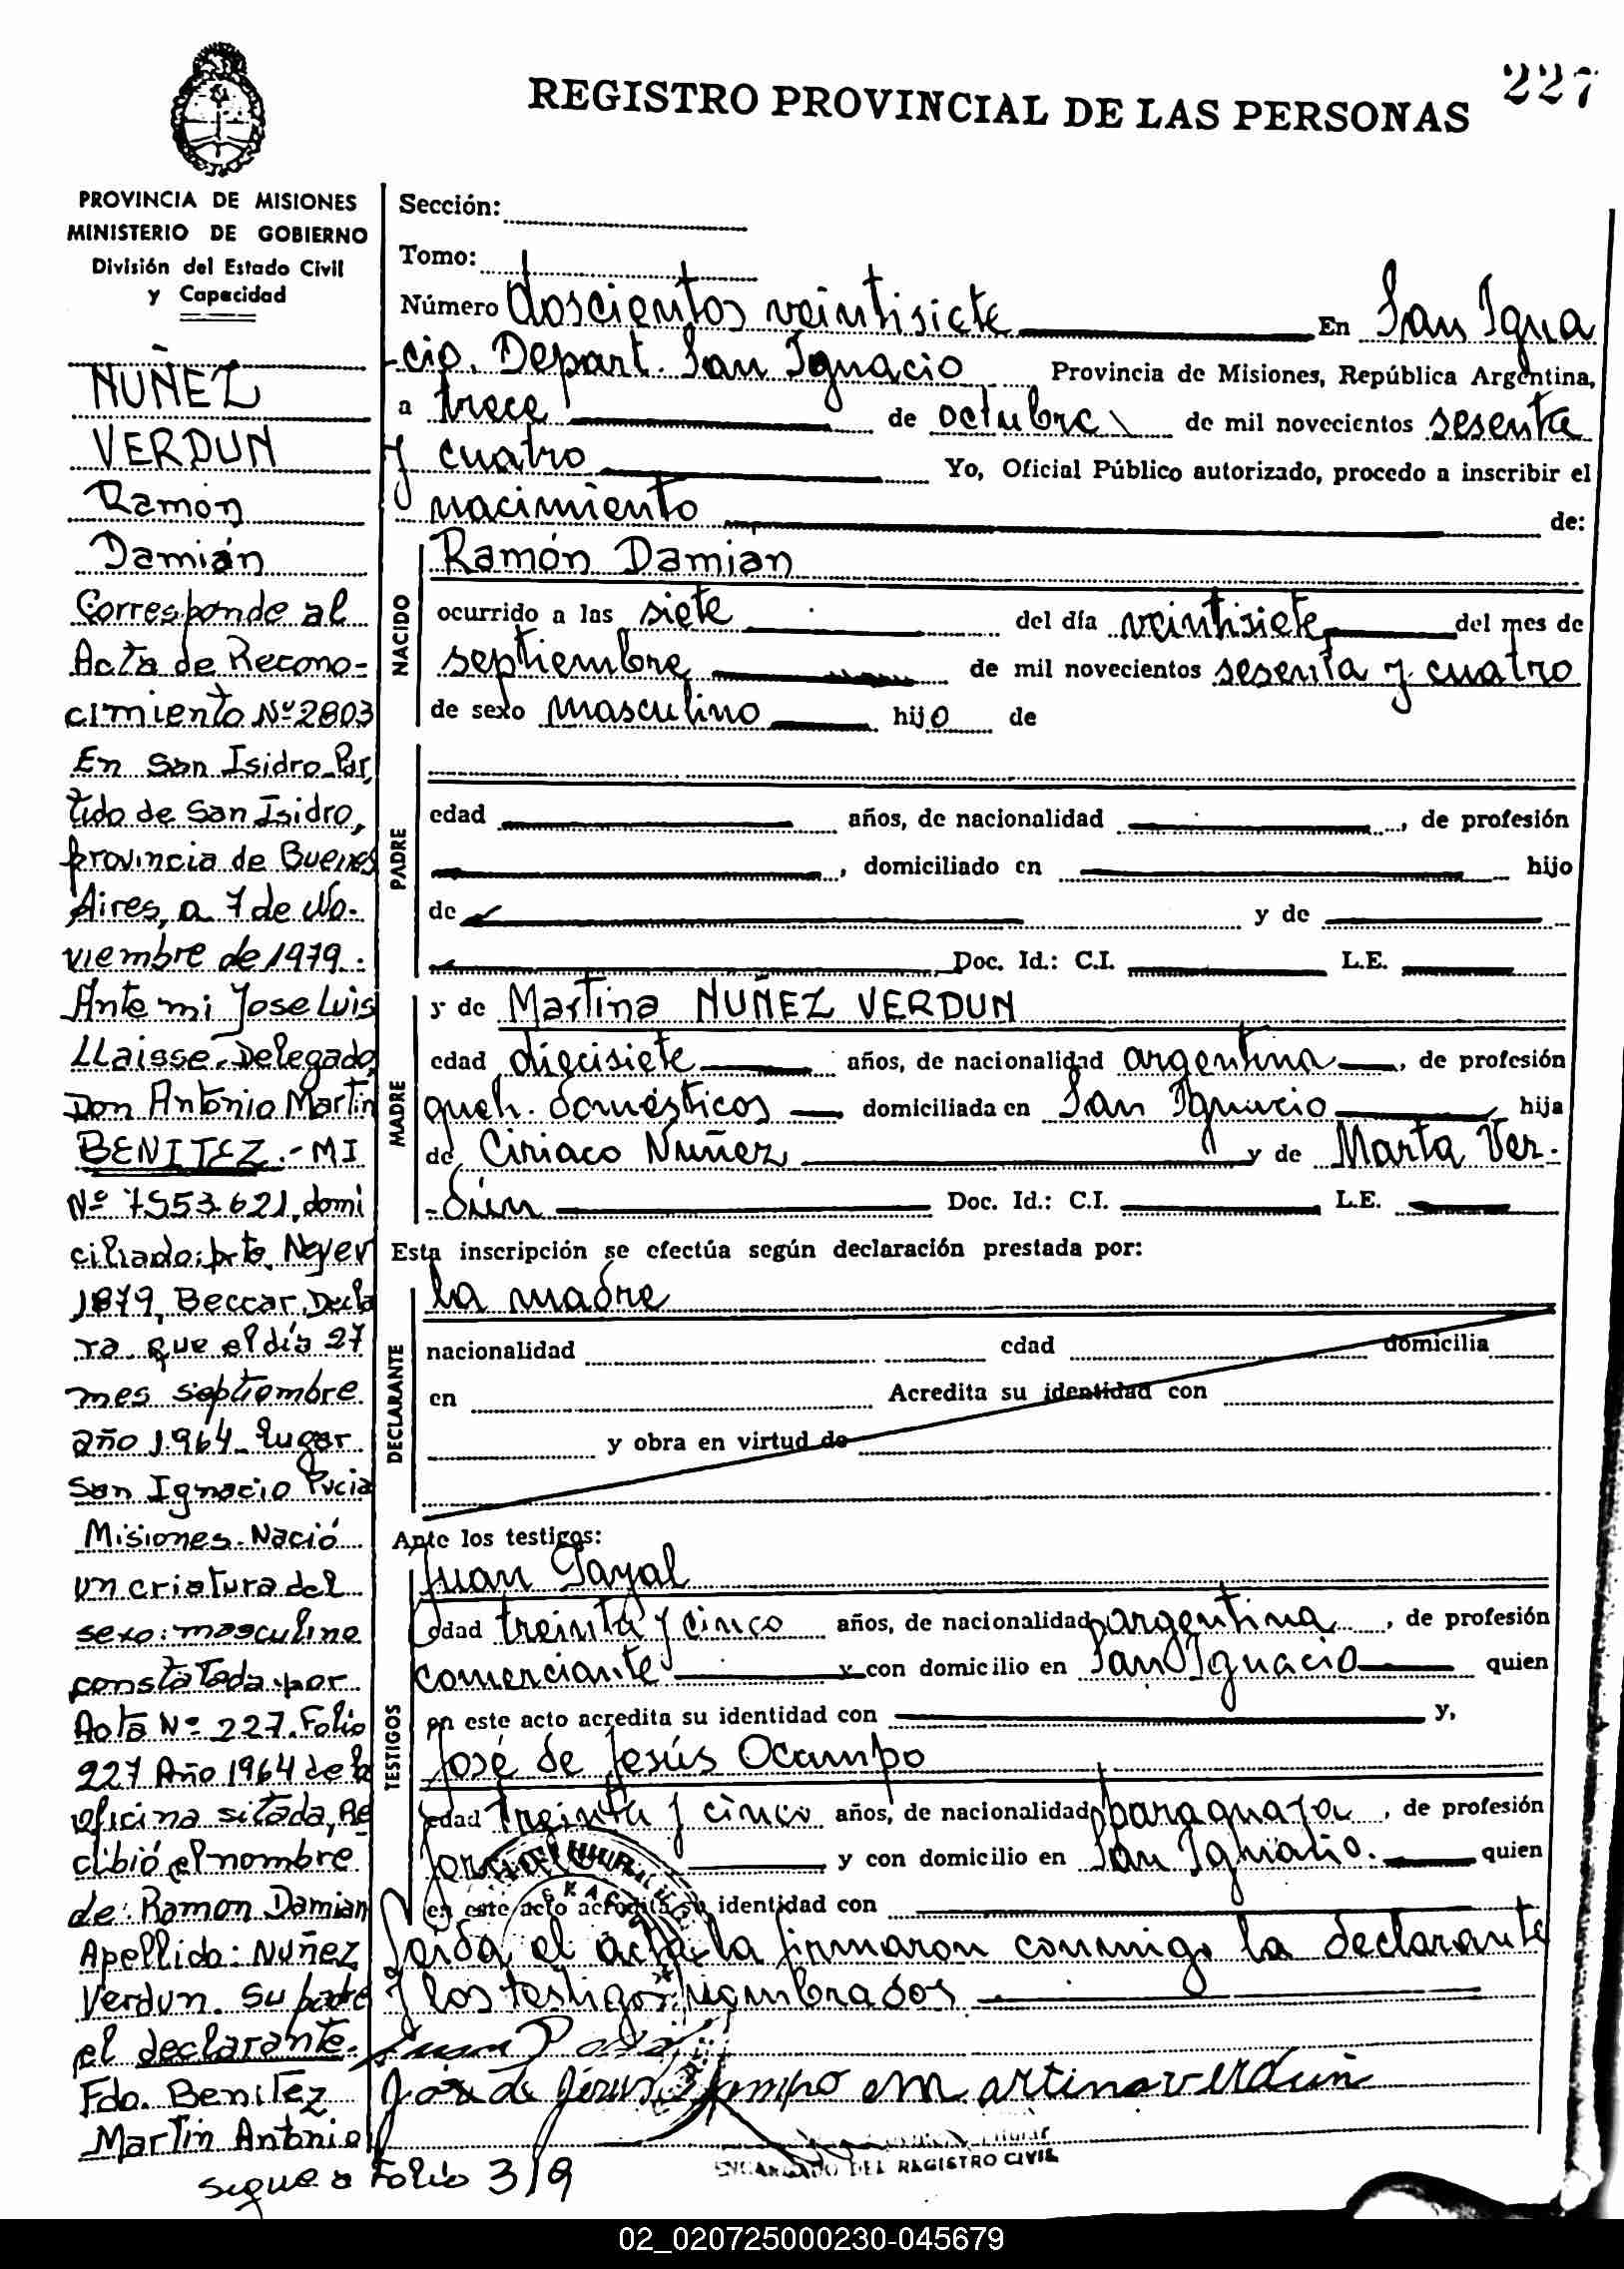 227
REGISTRO PROVINCIAL DE LAS PERSONAS
PROVINCIA DE MISIONES
MINISTERIO DE GOBIERNO
División del Estado Civil
y Capacidad
NUÑEZ
VERDUN
Ramón
Damián
Corresponde al
Acta de Recono-
cimiento Nº 2803
En San Isidro Par
tido de San Isidro,
provincia de Buenos
Aires, a 7 de No-
viembre de 1979.-
Ante mi Jose Luis
LLaisse. Delegado,
Don Antonio Martin
BENITEZ.- MI
Nº 7553.621, domi
ciliado: pto. Neyer
1879, Beccar, Decla
ra que el día 27
mes septiembre
año 1964 lugar
San Ignacio Pvcia
Misiones. Nació
un criatura del
sexo: masculino
constatada por
Acta Nº 227. Folio
227 Año 1964 de la
oficina sitada, Re
cibió el nombre
de: Ramon Damian
Apellido: Nuñez
Verdun. Su padre
el declarante.
Fdo. Benitez
Martin Antonio
sigue a Folio 319
Sección:
Tomo:
Número doscientos veintisiete En San Igna
-cio. Depart. San Ignacio Provincia de Misiones, República Argentina,
a trece de octubre de mil novecientos sesenta
y cuatro Yo, Oficial Público autorizado, procedo a inscribir el
nacimiento de:
NACIDO
Ramón Damian
ocurrido a las siete del día veintisiete del mes de
septiembre de mil novecientos sesenta y cuatro
de sexo masculino hijo de
PADRE
edad años, de nacionalidad , de profesión
, domiciliado en hijo
de y de
Doc. Id.: C.I. L.E.
MADRE
y de Martina NUÑEZ VERDUN
edad diecisiete años, de nacionalidad argentina , de profesión
queh. domésticos domiciliada en San Ignacio hija
de Ciriaco Nuñez y de Marta Ver-
-dún Doc. Id.: C.I. L.E.
Esta inscripción se efectúa según declaración prestada por:
DECLARANTE
la madre
nacionalidad edad domicilia
en Acredita su identidad con
y obra en virtud de
Ante los testigos:
TESTIGOS
Juan
edad treinta y cinco años, de nacionalidad argentina , de profesión
comerciante y con domicilio en San Ignacio quien
en este acto acredita su identidad con y,
José de Jesús Ocampo
edad treinta y cinco años, de nacionalidad paraguaya , de profesión
y con domicilio en San Ignacio. quien
en este acto acredita su identidad con
Leida el acta la firmaron conmigo la declarante
y los testigos nombrados
Jose de Jesus Ocampo martina verdun
ENCARGADO DEL REGISTRO CIVIL
02_020725000230-045679